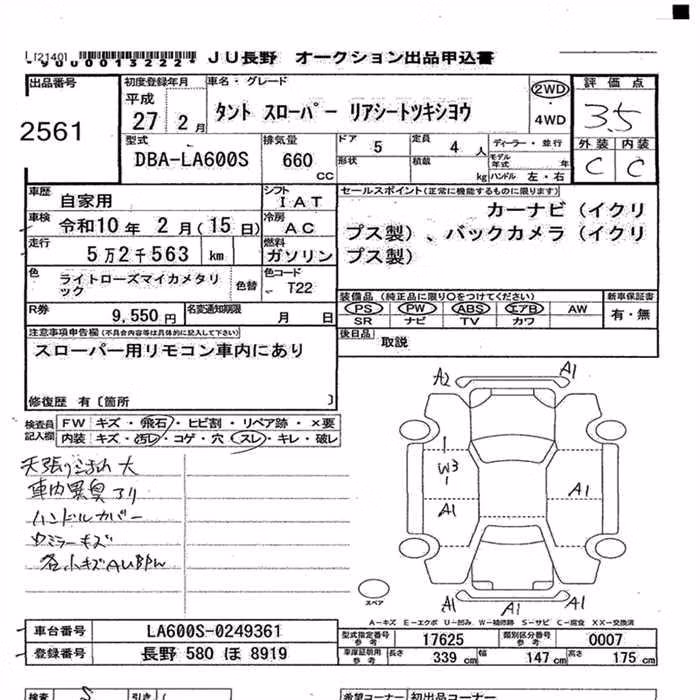 [2140]
*9000013222*
JU長野 オークション出品申込書
出品番号
2561
初度登録年月
平成
27 2月
車名・グレード
タント スローパー リアシートツキシヨウ
2WD
・
4WD
評価点
3.5
外装 内装
C C
型式
DBA-LA600S
排気量
660 CC
ドア 5
形状
定員 4 人
積載 kg
ディーラー・並行
モデル年式 年
ハンドル 左・右
車歴 自家用
シフト
IAT
車検 令和10年 2月(15日)
冷房
AC
走行 5万2千563 km
燃料
ガソリン
セールスポイント(正常に機能するものに限ります)
カーナビ(イクリ
プス製)、バックカメラ(イクリ
プス製)
色 ライトローズマイカメタリ
ック
色替
色コード
T22
R券 9,550円
名変通知期限 月 日
装備品(純正品に限り○をつけてください)
PS PW ABS エアB AW
SR ナビ TV カワ
新車保証書
有・無
後日品 取説
注意事項申告欄(不具合内容等は具体的に記入して下さい)
スローパー用リモコン車内にあり
修復歴 有〔箇所 〕
検査員
記入欄
FW キズ・飛石・ヒビ割・リペア跡・×要
内装 キズ・汚レ・コゲ・穴・スレ・キレ・破レ
車内異臭アリ
ハンドルカバー
A2 A1
W3
A1 A1
A1 A1
スペア
A−キズ E−エクボ U−凹み W−補修跡 S−サビ C−腐食 XX−交換済
車台番号 LA600S-0249361
登録番号 長野 580 ほ 8919
型式指定番号
参考
17625
類別区分番号
参考
0007
車庫証明用
参考
長さ 339 cm 幅 147 cm 高さ 175 cm
検査 S
引き
希望コーナー 初出品コーナー